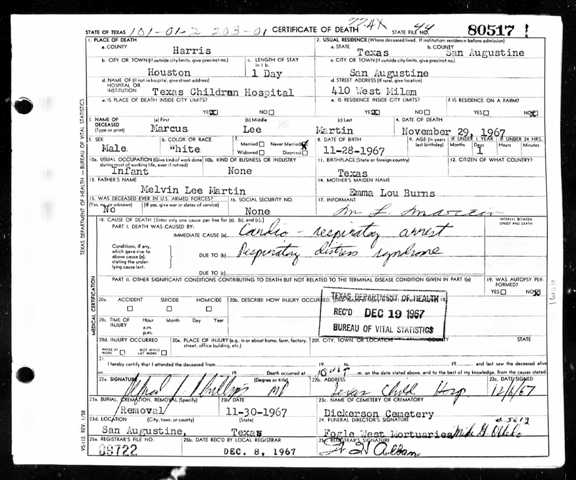 STATE OF TEXAS 101-01-2 203-01 CERTIFICATE OF DEATH STATE FILE NO. 80517
1. PLACE OF DEATH
a. COUNTY Harris
2. USUAL RESIDENCE (Where deceased lived. If institution: residence before admission)
a. STATE Texas b. COUNTY San Augustine
b. CITY OR TOWN (If outside city limits, give precinct no.) Houston
c. LENGTH OF STAY 1 Day
c. CITY OR TOWN (If outside city limits, give precinct no.) San Augustine
d. NAME OF (If not in hospital, give street address) HOSPITAL OR INSTITUTION Texas Children Hospital
d. STREET ADDRESS (If rural, give location) 410 West Milam
e. IS PLACE OF DEATH INSIDE CITY LIMITS? YES NO
e. IS RESIDENCE INSIDE CITY LIMITS? YES NO
f. IS RESIDENCE ON A FARM? YES NO
3. NAME OF DECEASED (a) First Marcus (b) Middle Lee (c) Last Martin
4. DATE OF DEATH November 29, 1967
5. SEX Male
6. COLOR OR RACE "hite
7. Married Never Married Widowed Divorced
8. DATE OF BIRTH 11-28-1967
IF UNDER 1 YEAR Months Days 1
IF UNDER 24 HRS. Hours Min.
10a. USUAL OCCUPATION (Give kind of work done during most of working life, even if retired) Infant
10b. KIND OF BUSINESS OR INDUSTRY None
11. BIRTHPLACE (State or foreign country) Texas
12. CITIZEN OF WHAT COUNTRY?
13. FATHER'S NAME Melvin Lee Martin
14. MOTHER'S MAIDEN NAME Emma Lou Burns
15. WAS DECEASED EVER IN U.S. ARMED FORCES? No
16. SOCIAL SECURITY NO. None
17. INFORMANT M L Martin
18. CAUSE OF DEATH (Enter only one cause per line for (a), (b), and (c).)
INTERVAL BETWEEN ONSET AND DEATH
PART I. DEATH WAS CAUSED BY:
IMMEDIATE CAUSE (a) Cardio-respiratory arrest
Conditions, if any, which gave rise to above cause (a) stating the underlying cause last.
DUE TO (b) Respiratory distress syndrome
DUE TO (c)
PART II. OTHER SIGNIFICANT CONDITIONS CONTRIBUTING TO DEATH BUT NOT RELATED TO THE TERMINAL DISEASE CONDITION GIVEN IN PART I(a)
19. WAS AUTOPSY PERFORMED? YES NO
20a. ACCIDENT SUICIDE HOMICIDE
20b. DESCRIBE HOW INJURY OCCURRED
TEXAS DEPARTMENT OF HEALTH
REC'D DEC 19 1967
BUREAU OF VITAL STATISTICS
20c. TIME OF INJURY Hour Month Day Year
a.m.
p.m.
20d. INJURY OCCURRED WHILE AT WORK NOT WHILE AT WORK
20e. PLACE OF INJURY (e.g. in or about home, farm, factory, street, office building, etc.)
20f. CITY, TOWN, OR LOCATION COUNTY STATE
21. I hereby certify that I attended the deceased from
and last saw the deceased alive
Death occurred at
on the date stated above, and to the best of my knowledge, from the causes stated.
22a. SIGNATURE (Degree or title) MD
22b. ADDRESS Texas Child Hosp
22c. DATE SIGNED 12/6/67
23a. BURIAL, CREMATION, REMOVAL (Specify) Removal
23b. DATE 11-30-1967
23c. NAME OF CEMETERY OR CREMATORY Dickerson Cemetery
23d. LOCATION (City, town, or county) (State) San Augustine, Texas
24. FUNERAL DIRECTOR'S SIGNATURE Fogle West Mortuaries
25a. REGISTRAR'S FILE NO. 08722
25b. DATE REC'D BY LOCAL REGISTRAR DEC. 8, 1967
25c. REGISTRAR'S SIGNATURE
TEXAS DEPARTMENT OF HEALTH — BUREAU OF VITAL STATISTICS
MEDICAL CERTIFICATION